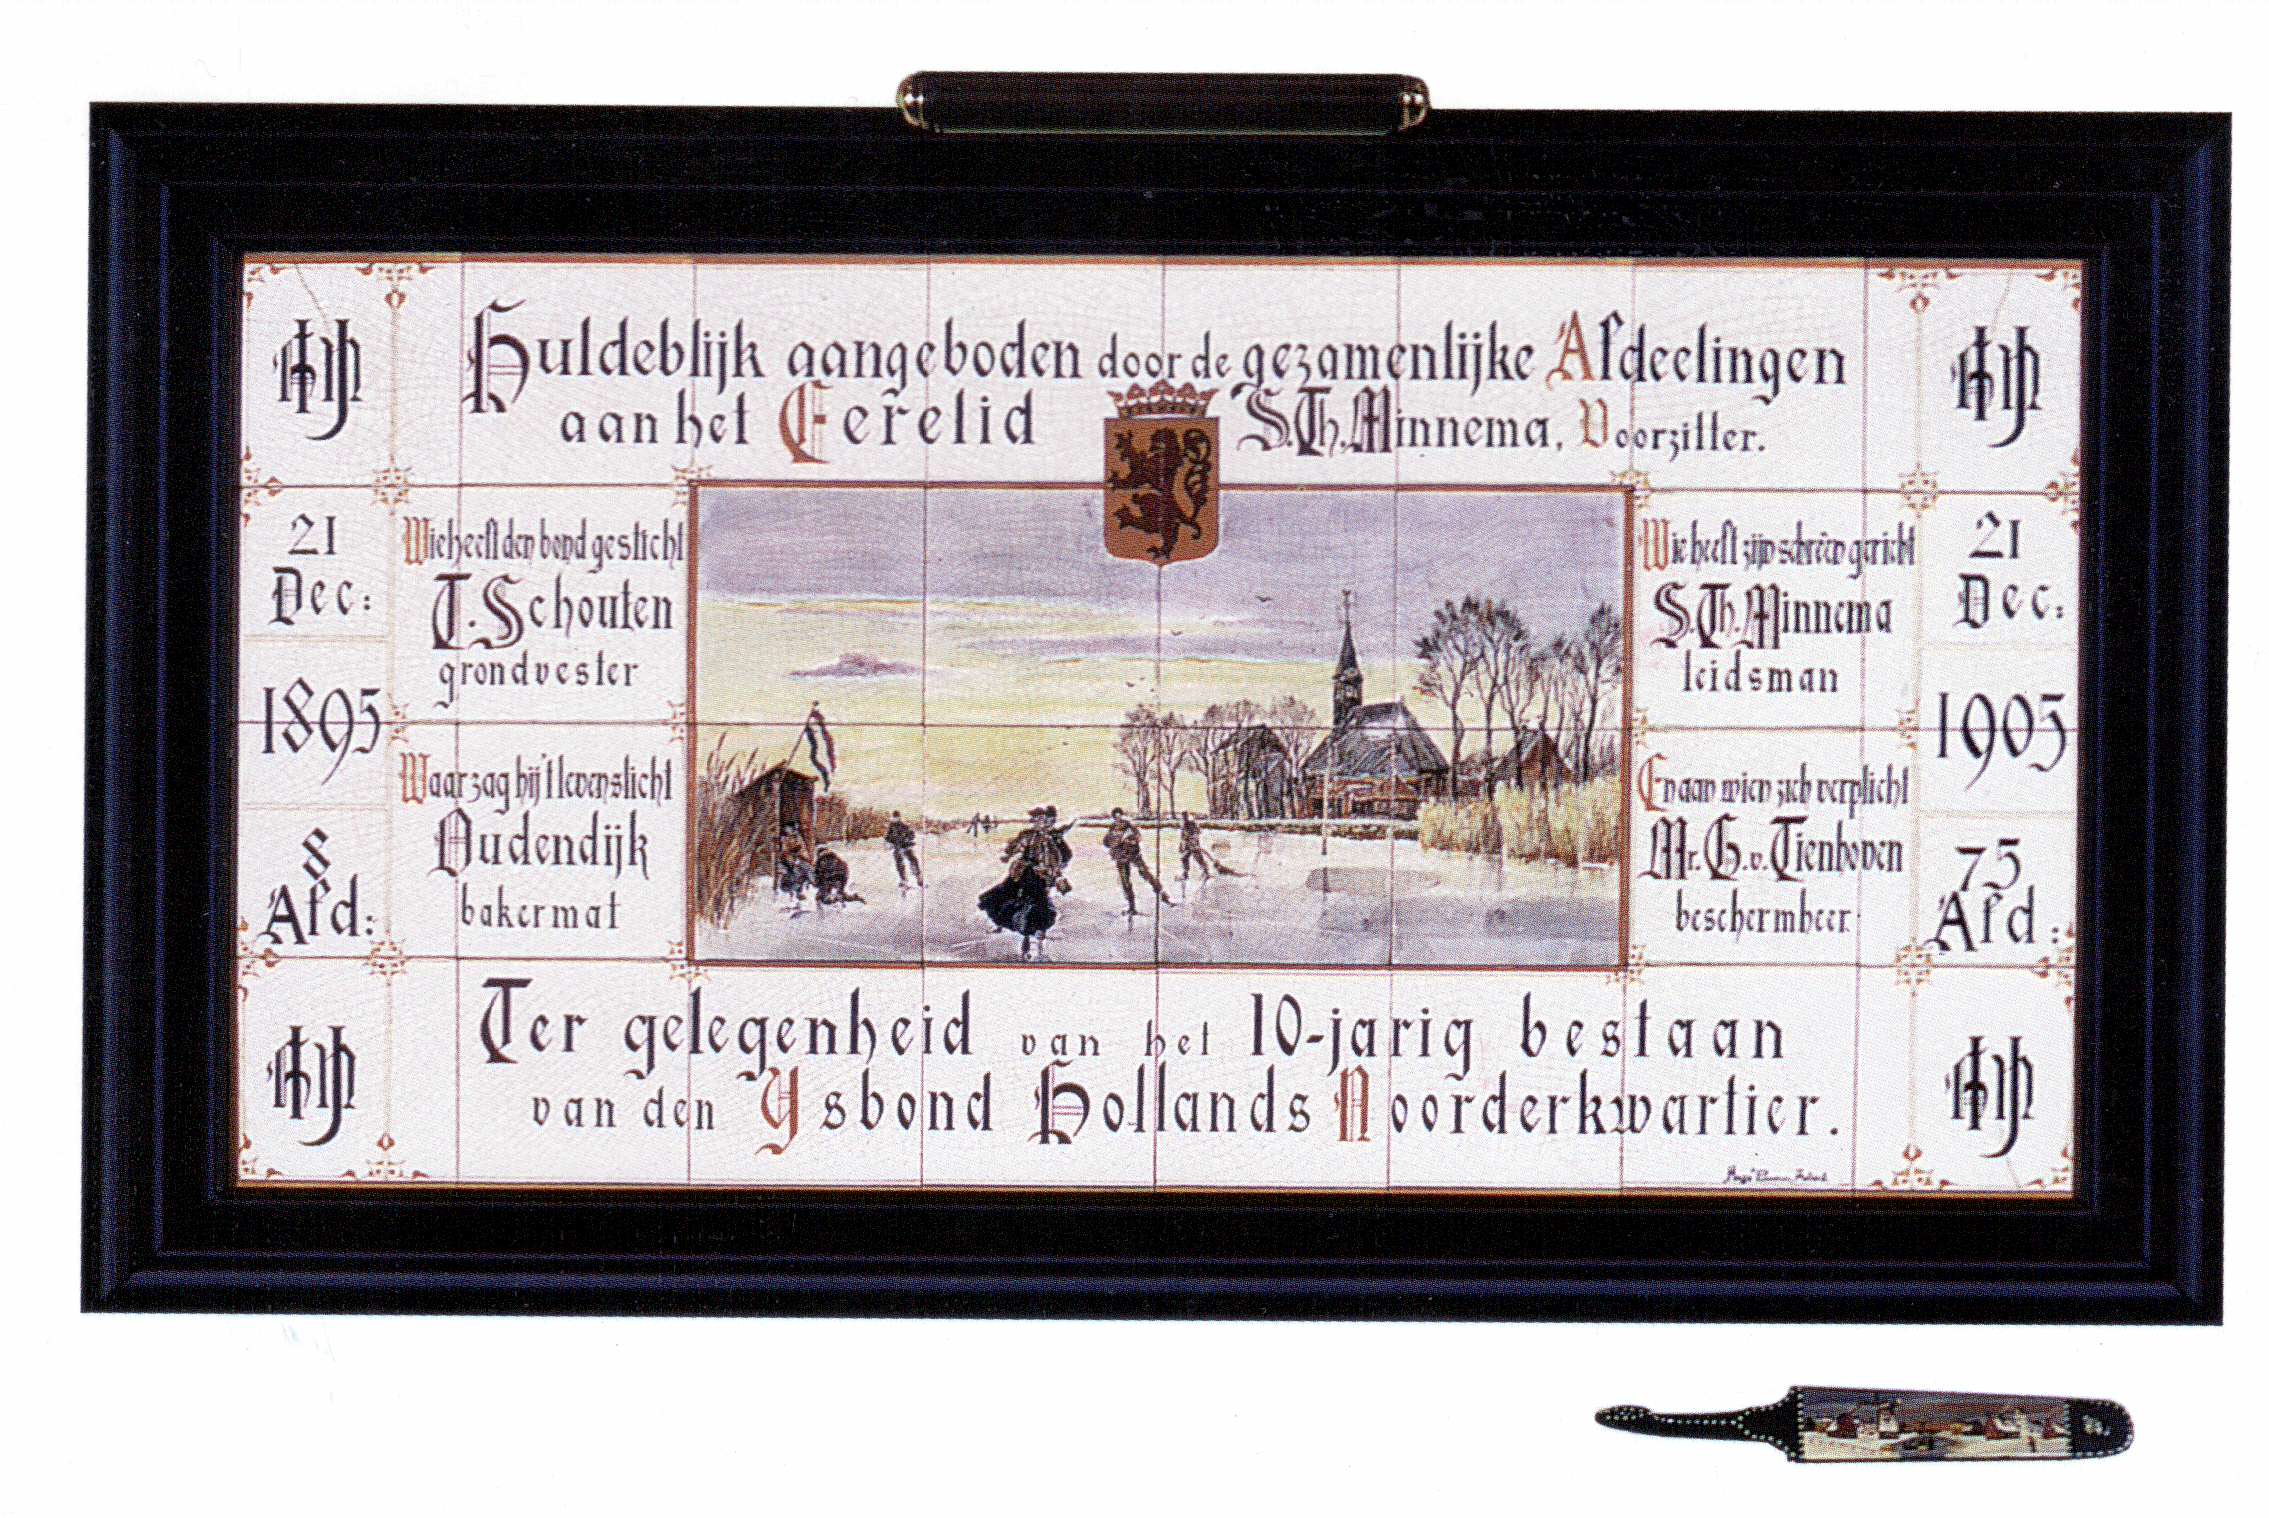 Huldeblijk aangeboden door de gezamenlijke Afdeelingen
aan het Eerelid S.Th.Minnema, Voorzitter.
21
Dec:
1895
8
Afd:
Wie heeft den bond gesticht
T. Schouten
grondvester
Waar zag hij 't levenslicht
Oudendijk
bakermat
Wie heeft zijn schreên gericht
S.Th.Minnema
leidsman
En aan wien zich verplicht
Mr. G. v. Tienhoven
beschermheer
21
Dec:
1905
75
Afd:
Ter gelegenheid van het 10-jarig bestaan
van den Ysbond Hollands Noorderkwartier.